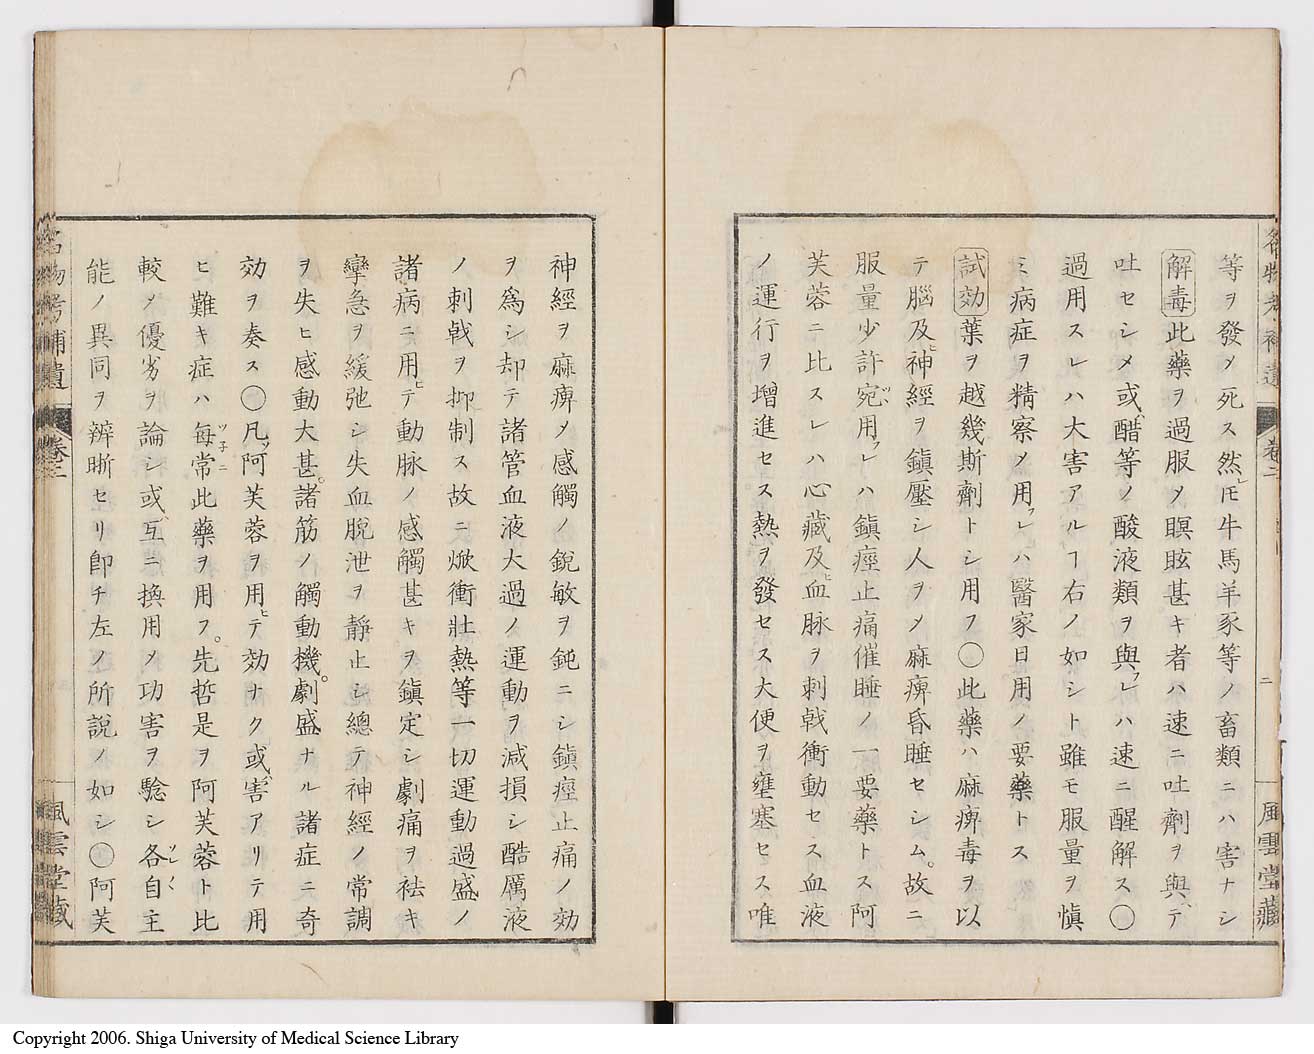 名物考補遺 卷二 二 風雲堂藏
等ヲ發メ死ス然レ𪜈牛馬羊豕等ノ畜類ニハ害ナシ
解毒此藥ヲ過服メ瞑眩甚キ者ハ速ニ吐劑ヲ與テ
吐セシメ或ハ醋等ノ酸液類ヲ與フレハ速ニ醒解ス〇
過用スレハ大害アルヿ右ノ如シト雖モ服量ヲ愼
ミ病症ヲ精察メ用フレハ醫家日用ノ要藥トス
試効葉ヲ越幾斯劑トシ用フ〇此藥ハ麻痺毒ヲ以
テ腦及ヒ神經ヲ鎭壓シ人ヲメ麻痺昏睡セシム。故ニ
服量少許ツヽ宛用フレハ鎭痙止痛催睡ノ一要藥トス阿
芙蓉ニ比スレハ心藏及ヒ血脉ヲ刺戟衝動セス血液
ノ運行ヲ增進セス熱ヲ發セス大便ヲ壅塞セス唯
神經ヲ麻痺メ感觸ノ銳敏ヲ鈍ニシ鎭痙止痛ノ効
ヲ爲シ却テ諸管血液大過ノ運動ヲ減損シ酷厲液
ノ刺戟ヲ抑制ス故ニ焮衝壯熱等一切運動過盛ノ
諸病ニ用ヒテ動脉ノ感觸甚キヲ鎭定シ劇痛ヲ袪キ
攣急ヲ緩弛シ失血脫泄ヲ靜止シ總テ神經ノ常調
ヲ失ヒ感動大甚。諸筋ノ觸動機。劇盛ナル諸症ニ奇
効ヲ奏ス〇凡ソ阿芙蓉ヲ用ヒテ効ナク或ハ害アリテ用
ヒ難キ症ハ每常ツ子ニ此藥ヲ用フ。先哲是ヲ阿芙蓉ト比
較メ優劣ヲ論シ或ハ互ニ換用メ功害ヲ驗シ各ソレ〱自主
能ノ異同ヲ辨晣セリ卽チ左ノ所說ノ如シ〇阿芙
名物考補遺 卷二 風雲堂藏
Copyright 2006. Shiga University of Medical Science Library